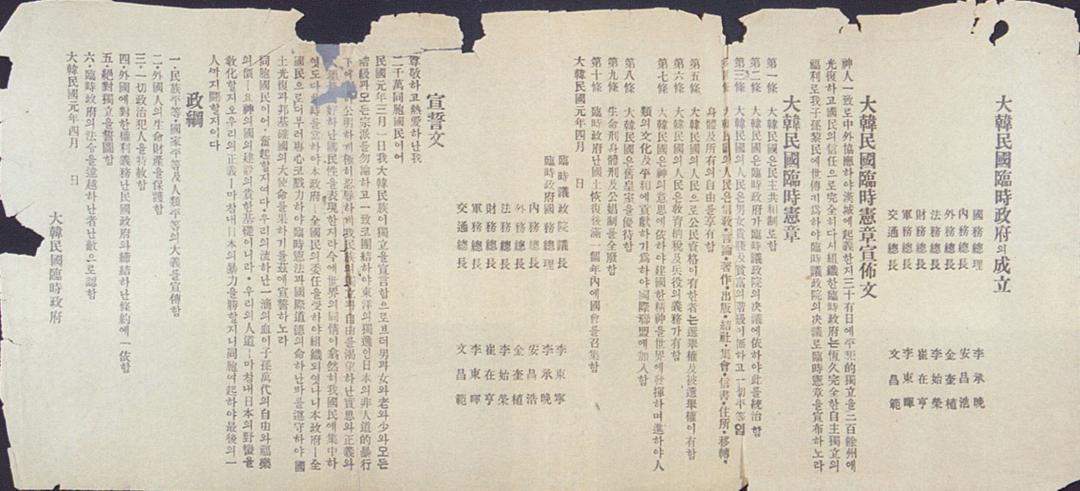 大韓民國臨時政府의成立
國務總理 李承晚
內務總長 安昌浩
外務總長 金奎植
法務總長 李始榮
財務總長 崔在亨
軍務總長 李東暉
交通總長 文昌範
大韓民國臨時憲章宣佈文
神人一致로中外協應하야漢城에起義한지三十有日에平和的獨立을三百餘州에
光復하고國民의信任으로完全히다시組織한臨時政府는恆久完全한自主獨立의
福利로我子孫黎民에世傳키爲하야臨時議政院의決議로臨時憲章을宣布하노라
大韓民國臨時憲章
第一條 大韓民國은民主共和制로함
第二條 大韓民國은臨時政府가臨時議政院의決議에依하야此를統治함
第三條 大韓民國의人民은男女貴賤及貧富의階級이無하고一切平等임
大韓民國의人民은信敎·言論·著作·出版·結社·集會·信書·住所·移轉·
身體及所有의自由를享有함
第五條 大韓民國의人民으로公民資格이有한者는選擧權及被選擧權이有함
第六條 大韓民國의人民은敎育納稅及兵役의義務가有함
第七條 大韓民國은神의意思에依하야建國한精神을世界에發揮하며進하야人
類의文化及平和에貢獻하기爲하야國際聯盟에加入함
第八條 大韓民國은舊皇室을優待함
第九條 生命刑身體刑及公娼制를全廢함
第十條 臨時政府난國土恢復後滿一個年內에國會를召集함
大韓民國元年四月 日
臨時議政院議長 李東寧
臨時政府國務總理 李承晚
內務總長 安昌浩
外務總長 金奎植
法務總長 李始榮
財務總長 崔在亨
軍務總長 李東暉
交通總長 文昌範
宣誓文
尊敬하고熱愛하난我
二千萬同胞國民이어
民國元年三月一日我大韓民族이獨立을宣言함으로브더男과女와老와少와모든
階級과모든宗派를勿論하고一致코團結하야東洋의獨逸인日本의非人道的暴行
下에 極히忍辱하며我民族의獨立과自由를渴望하난實思와正義와
國民性을表現한지라今에世界의同情이翕然히我國民에集中하
時를當하야本政府ㅣ全國民의委任을受하야組織되엿나니本政府ㅣ全
國民으로더부러專心코戮力하야臨時憲法과國際道德의命하난바를遵守하야國
土光復과邦基確國의大使命을果하기를玆에宣誓하노라
同胞國民이어·奮起할지여다·우리의流하난一滴의血이子孫萬代의自由와福樂
의價ㅣ요神의國의建設의貴한基礎이니라·우리의人道ㅣ마참내日本의野蠻을
敎化할지오우리의正義ㅣ마참내日本의暴力을勝할지니同胞여起하야最後의一
人까지鬪할지어다
政綱
一·民族平等·國家平等及人類平等의大義를宣傳함
二·外國人의生命財產을保護함
三·一切政治犯人을特赦함
四·外國에對한權利義務난民國政府와締結하난條約에一依함
五·絕對獨立을誓圖함
六·臨時政府의法令을違越하난者난敵으로認함
大韓民國元年四月 日
大韓民國臨時政府